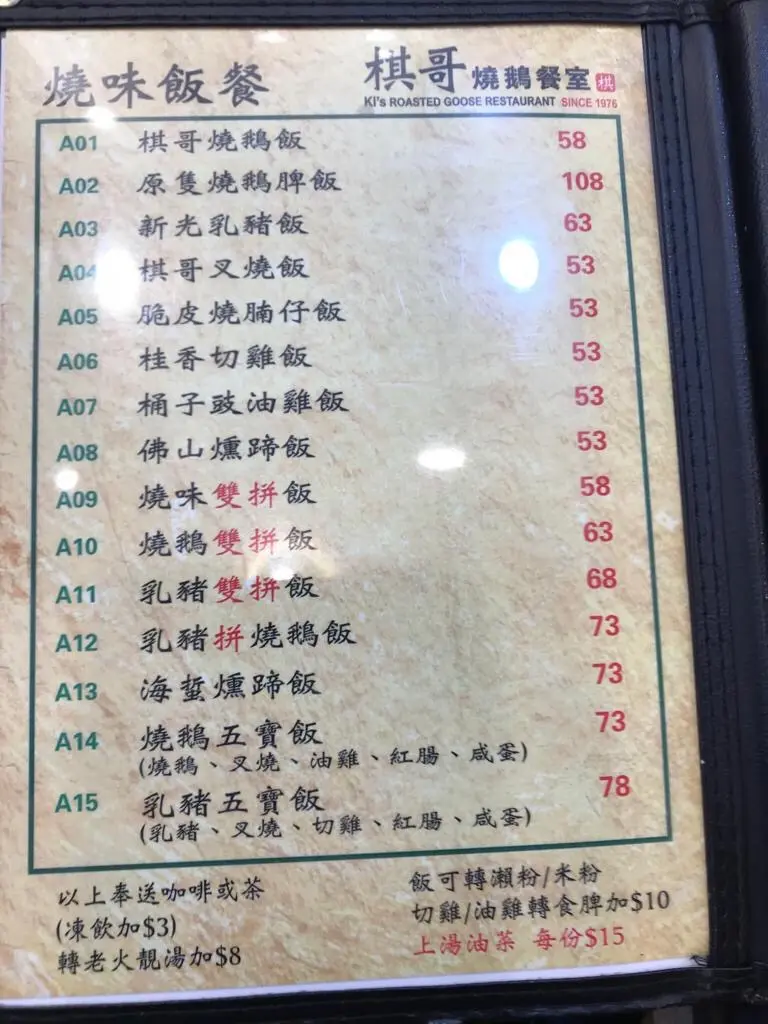 燒味飯餐
棋哥燒鵝餐室 棋
Ki's ROASTED GOOSE RESTAURANT SINCE 1976
A01 棋哥燒鵝飯 58
A02 原隻燒鵝脾飯 108
A03 新光乳豬飯 63
A04 棋哥叉燒飯 53
A05 脆皮燒腩仔飯 53
A06 桂香切雞飯 53
A07 桶子豉油雞飯 53
A08 佛山燻蹄飯 53
A09 燒味雙拼飯 58
A10 燒鵝雙拼飯 63
A11 乳豬雙拼飯 68
A12 乳豬拼燒鵝飯 73
A13 海蜇燻蹄飯 73
A14 燒鵝五寶飯 73
(燒鵝、叉燒、油雞、紅腸、咸蛋)
A15 乳豬五寶飯 78
(乳豬、叉燒、切雞、紅腸、咸蛋)
以上奉送咖啡或茶
(凍飲加$3)
轉老火靚湯加$8
飯可轉瀨粉/米粉
切雞/油雞轉食脾加$10
上湯油菜 每份$15